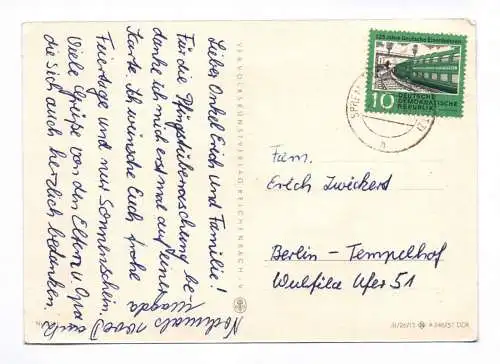 Lieber Onkel Erich und Familie!
Für die Pfingstüberraschung be-
danke ich mich erst mal auf einer
Karte. Ich wünsche Euch frohe
Feiertage und nur Sonnenschein.
Viele Grüße von den Eltern u. Opa
die sich auch herzlich bedanken.
Nochmals
VEB VOLKSKUNSTVERLAG REICHENBACH i. V.
125 Jahre Deutsche Eisenbahnen
10
DEUTSCHE
DEMOKRATISCHE
REPUBLIK
SPREM
Fam.
Erich Zwickert
Berlin - Tempelhof
Wulfila Ufer 51
III/26/13 A 346/57 DDR